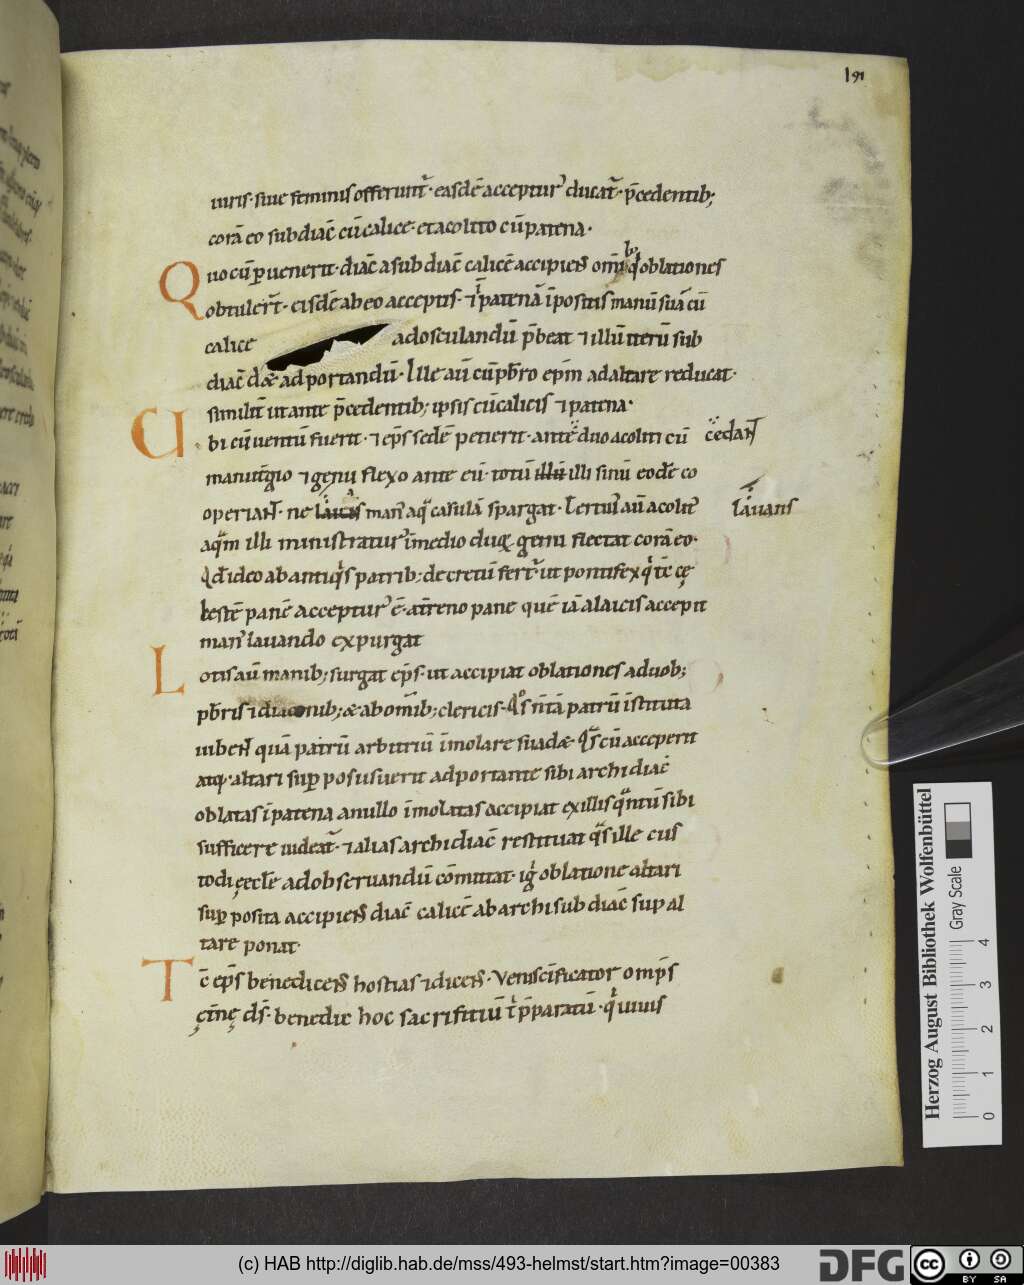 191
uiris· siue feminis offerunt̃· easdē acceptur᾽ ducat̃· p̄cedentib;
corā eo subdiac̄ cū calice· et acolito cū patena·
Quo cū ꝑuenerit· diac̄ a subdiac̄ calicē accipiens omib; q̇ oblationes
obtuler̄t· eisdē ab eo acceptis· ⁊ i̇ patenā īpositis manū suā cū
calice ad osculandū p̄beat ⁊ illū iterū sub
diac̄ dæ ad portandū· Ille aū cū pb̄ro ep̄m ad altare reducat·
similit̄ ut ante p̄cedentib; ipsis cū calicis ⁊ patena·
Ubi cū uentū fuerit· ⁊ ep̄s sedē petierit· ante duo acoliti cū
cēdant
manut̄gio ⁊ genu flexo ante eū· totū illū illi sinū eodē co
operiant· ne laicis man᾽ aq̄ casulā spargat· Tertur᾽ aū acolit᾽
lauans
aq̄m illi ministratur᾽ ī medio duꝝ genu flectat corā eo·
Qd̄ ideo ab antiq̇s patrib; decretū fert᾽ ut pontifex q̇ tc̄ cę
lestē panē acceptur᾽ ē· at̄reno pane quē iā a laicis accepit
man᾽ lauando expurgat
Lotis aū manib; surgat ep̄s· ut accipiat oblationes a duob;
pb̄ris ⁊ diaconib; æ ab om̄ib; clericis· Qos n̄tā patrū īstituta
iubent quā patrū arbitriū īmolare suadæ· Qas cū acceperit
atq· altari suꝑ posuerit adportante sibi archidiac̄
oblatas ī patena anullo īmolatas accipiat ex illis q̄ntū sibi
sufficere uideat̃· ⁊ alias archidiac̄ restituat q̄s ille cus
todi ęccl̄e ad obseruandū cōmittat· ig̊ oblatione altari
suꝑ posita accipiens diac̄ calicē ab archisubdiac̄ sup al
tare ponat·
Tc̄ ep̄s benedicens hostias ⁊ dicens· Veni sc̄ificator omp̄s
ęt̄nę ds̄· benedic hoc sacrifitiū t̊ p̄paratū· q̊ uiuis
Herzog August Bibliothek Wolfenbüttel
Gray Scale
0 1 2 3 4
(c) HAB http://diglib.hab.de/mss/493-helmst/start.htm?image=00383
DFG
cc BY SA